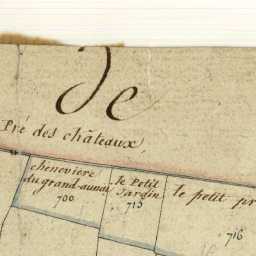 de
Pré des châteaux
chenevière
du grand-aunai
700
le Petit
Jardin
713
le petit pr
716